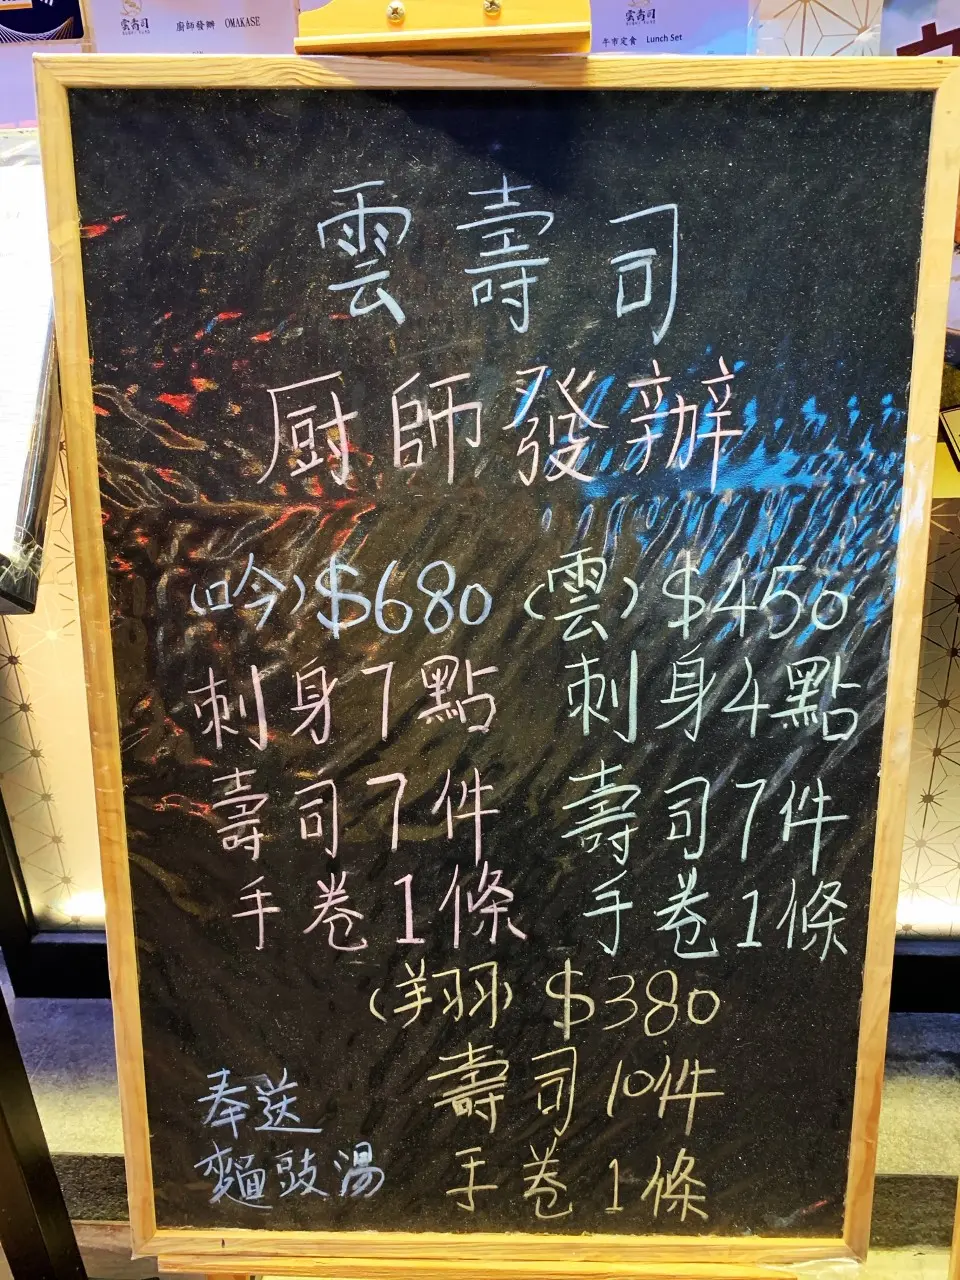 雲壽司
廚師發辦 OMAKASE
雲壽司
午市定食 Lunch Set
雲壽司
厨師發辦
(吟) $680 (雲) $450
刺身7點 刺身4點
壽司7件 壽司7件
手卷1條 手卷1條
(翔) $380
奉送 壽司10件
麵豉湯 手卷1條